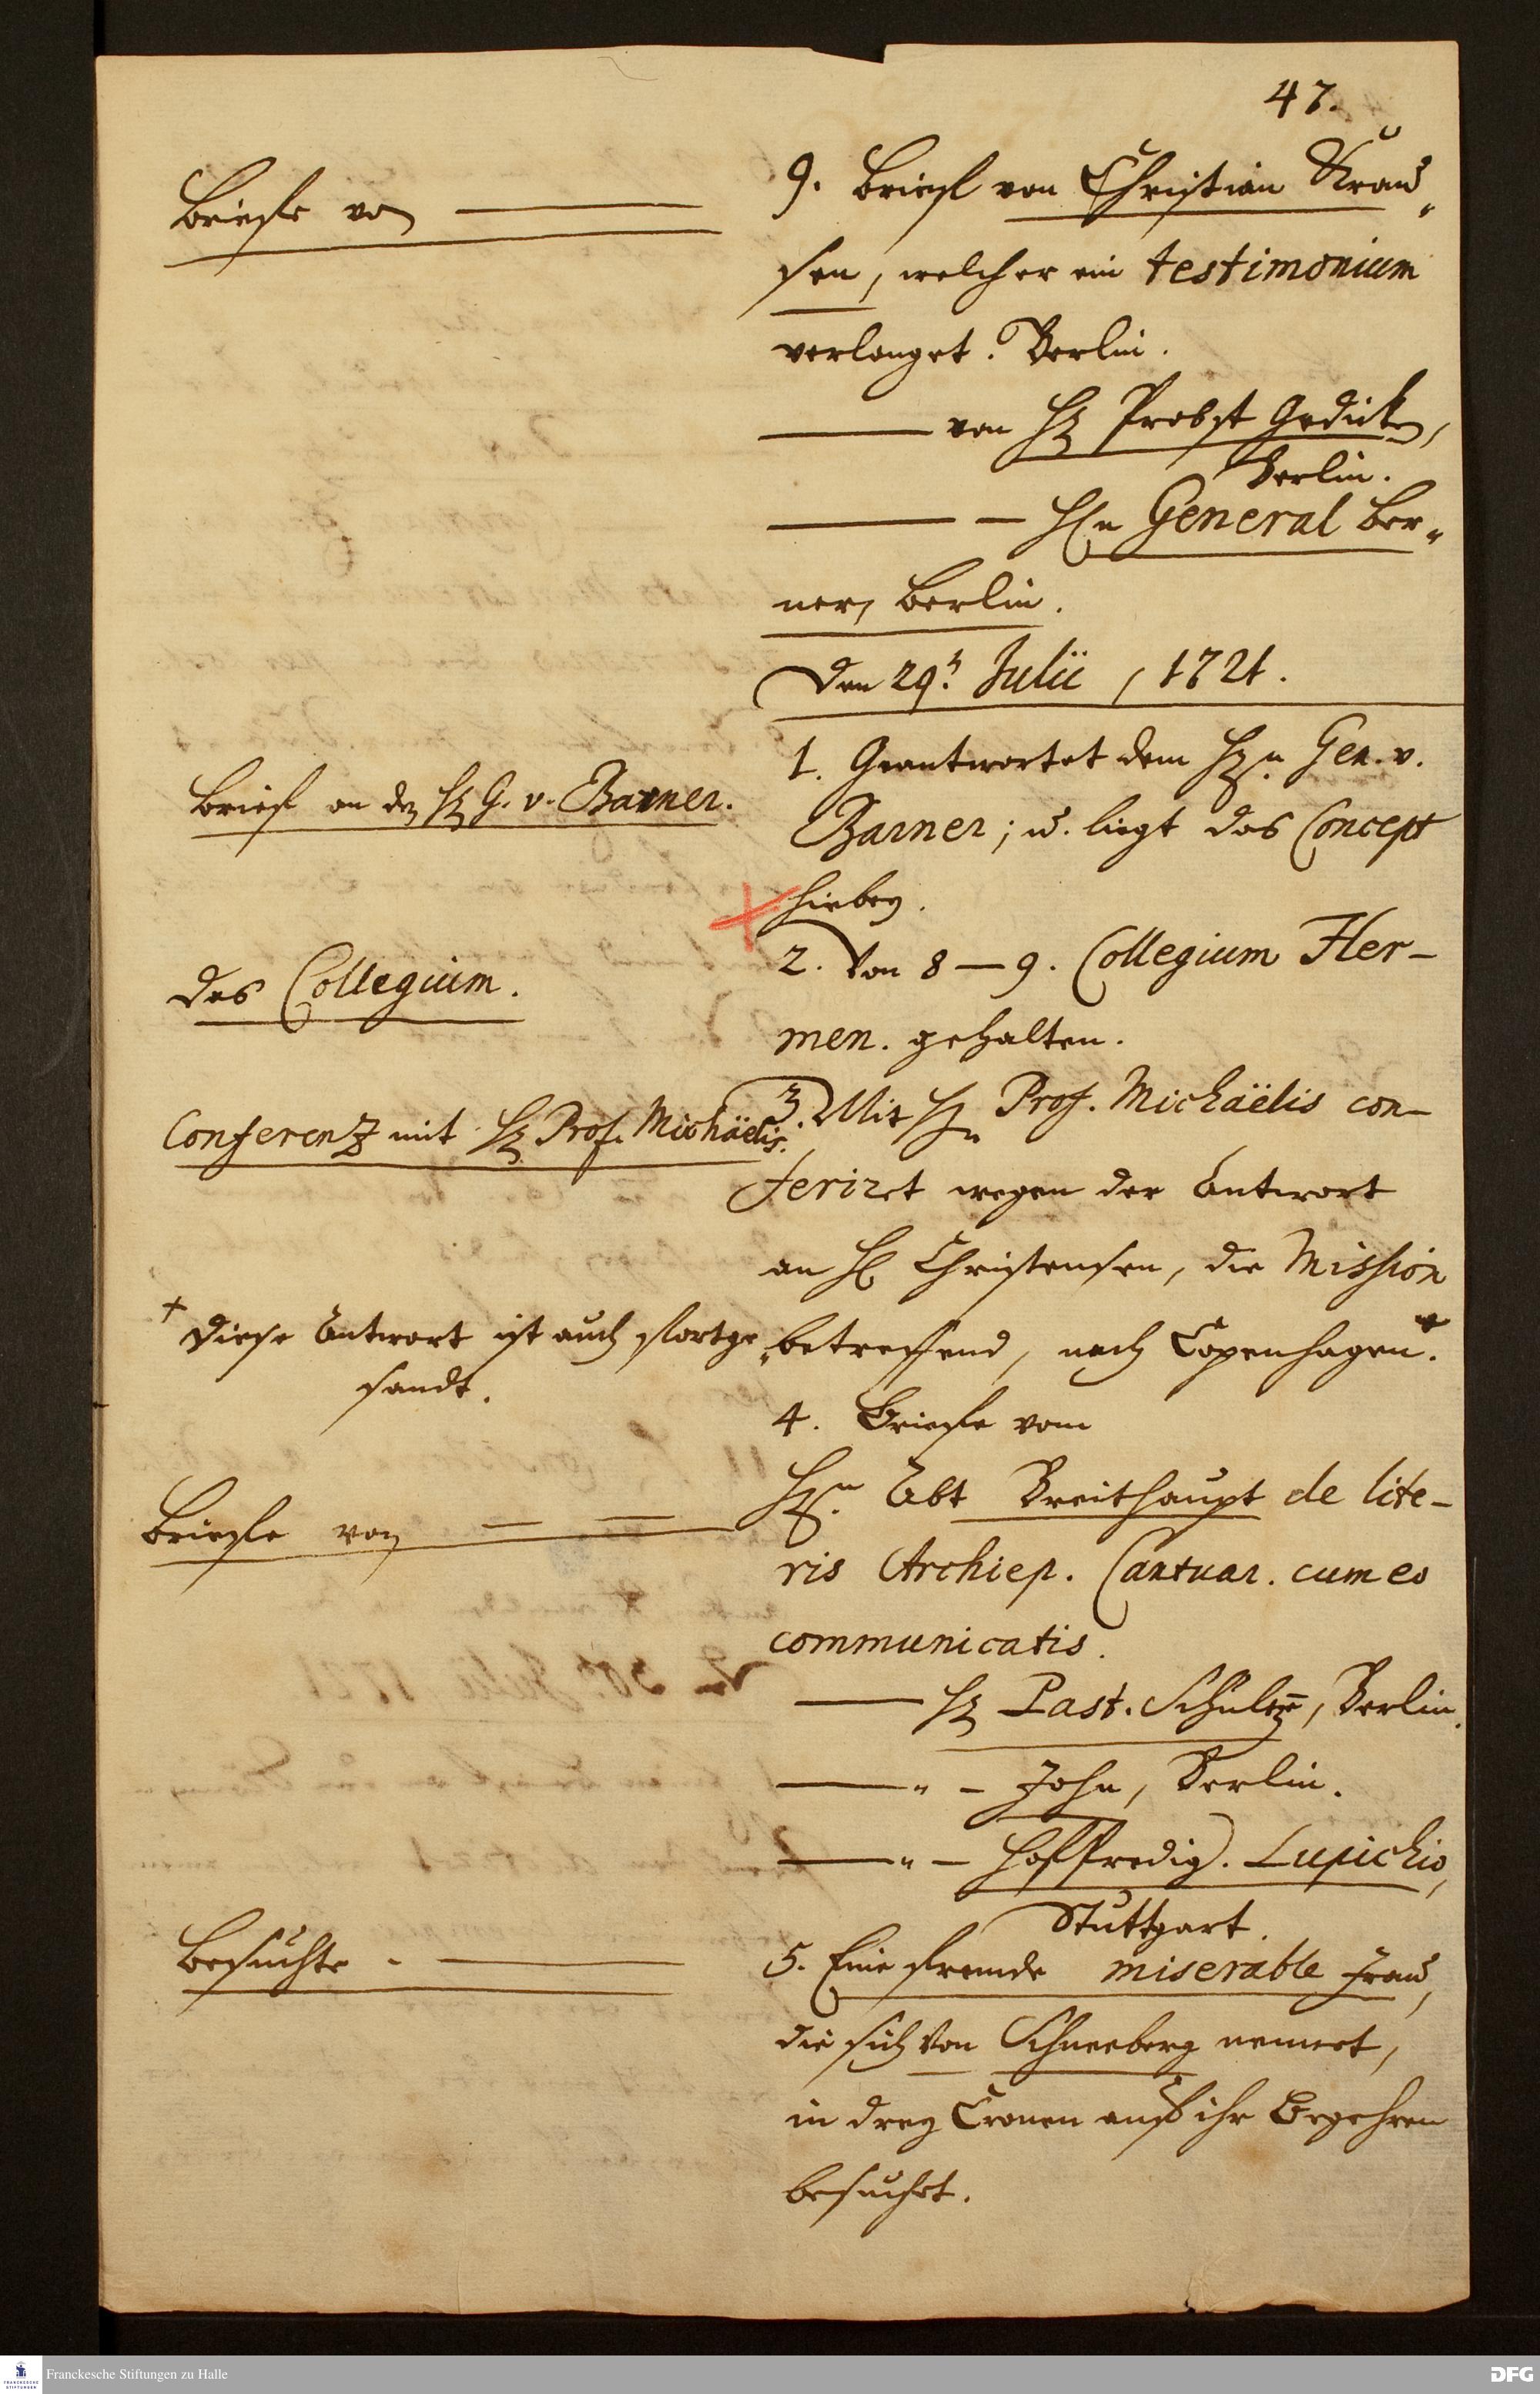 47.
Briefe von
9. Brief von Christian Krau-
sen, welcher ein testimonium
verlanget. Berlin.
von H. Probst Gedicken,
Berlin.
Hn General Ber-
ner, Berlin.
Den 29t. Julii, 1721.
Brief an den H. G. v. Barner.
1. Geantwortet dem Hn. Gen. v.
Barner; u. liegt das Concept
hiebey.
das Collegium.
2. Von 8 — 9. Collegium Her-
men. gehalten.
Conferenz mit H. Prof. Michaëlis.
3. Mit Hn Prof. Michaëlis con-
feriret wegen der Antwort
an H. Christensen, die Mission
betreffend, nach Copenhagen. +
+ Diese Antwort ist auch fortge-
sandt.
4. Briefe vom
Briefe von
Hn. Abt Breithaupt de lite-
ris Archiep. Cantuar. cum eo
communicatis.
H. Past. Schultz, Berlin.
" - John, Berlin.
" - Hoffpredig. Lupichio,
Stuttgart.
Besuchte -
5. Eine fremde miserable Frau,
die sich von Schneeberg nennet,
in drey Cronen auf ihr Begehren
besuchet.
Franckesche Stiftungen zu Halle
FRANCKESCHE STIFTUNGEN
DFG